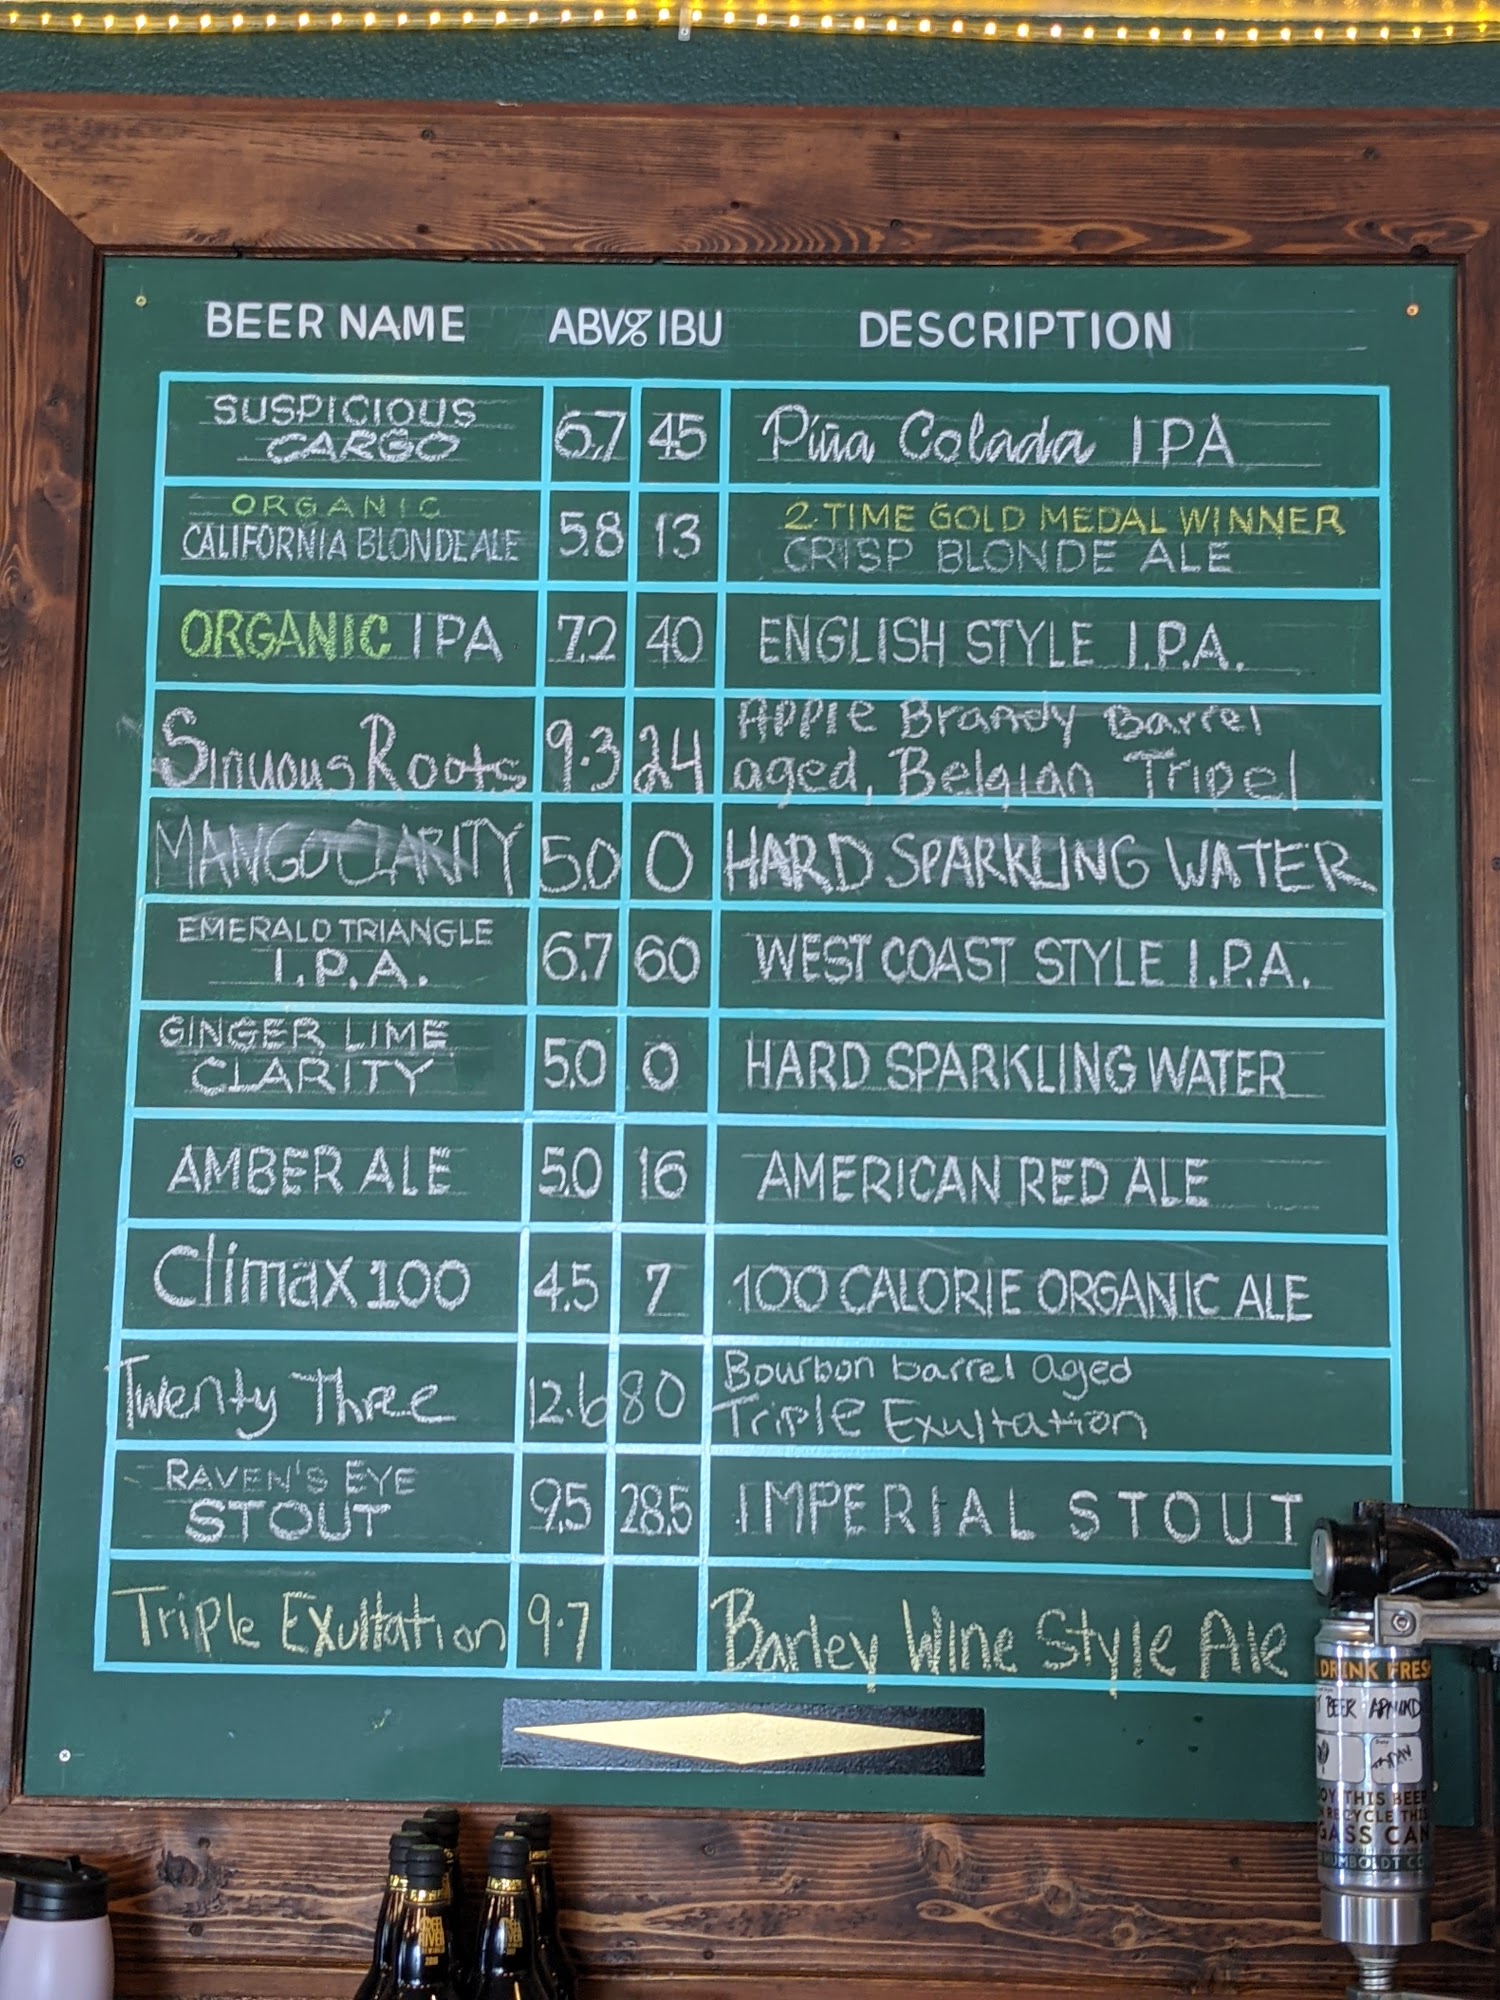 BEER NAME ABV% IBU DESCRIPTION
SUSPICIOUS
CARGO
6.7 45 Piña Colada IPA
ORGANIC
CALIFORNIA BLONDE ALE
5.8 13
2 TIME GOLD MEDAL WINNER
CRISP BLONDE ALE
ORGANIC IPA 7.2 40 ENGLISH STYLE I.P.A.
Sinuous Roots 9.3 24
Apple Brandy Barrel
aged, Belgian Tripel
MANGO CLARITY 5.0 0 HARD SPARKLING WATER
EMERALD TRIANGLE
I.P.A.
6.7 60 WEST COAST STYLE I.P.A.
GINGER LIME
CLARITY
5.0 0 HARD SPARKLING WATER
AMBER ALE 5.0 16 AMERICAN RED ALE
Climax 100 4.5 7 100 CALORIE ORGANIC ALE
Twenty Three 12.6 80
Bourbon barrel aged
Triple Exultation
RAVEN'S EYE
STOUT
9.5 28.5 IMPERIAL STOUT
Triple Exultation 9.7 Barley Wine Style Ale
DRINK FRES
BEER
OY THIS BEER
RECYCLE THIS
ASS CAN
UMBOLDT CO
RIVER